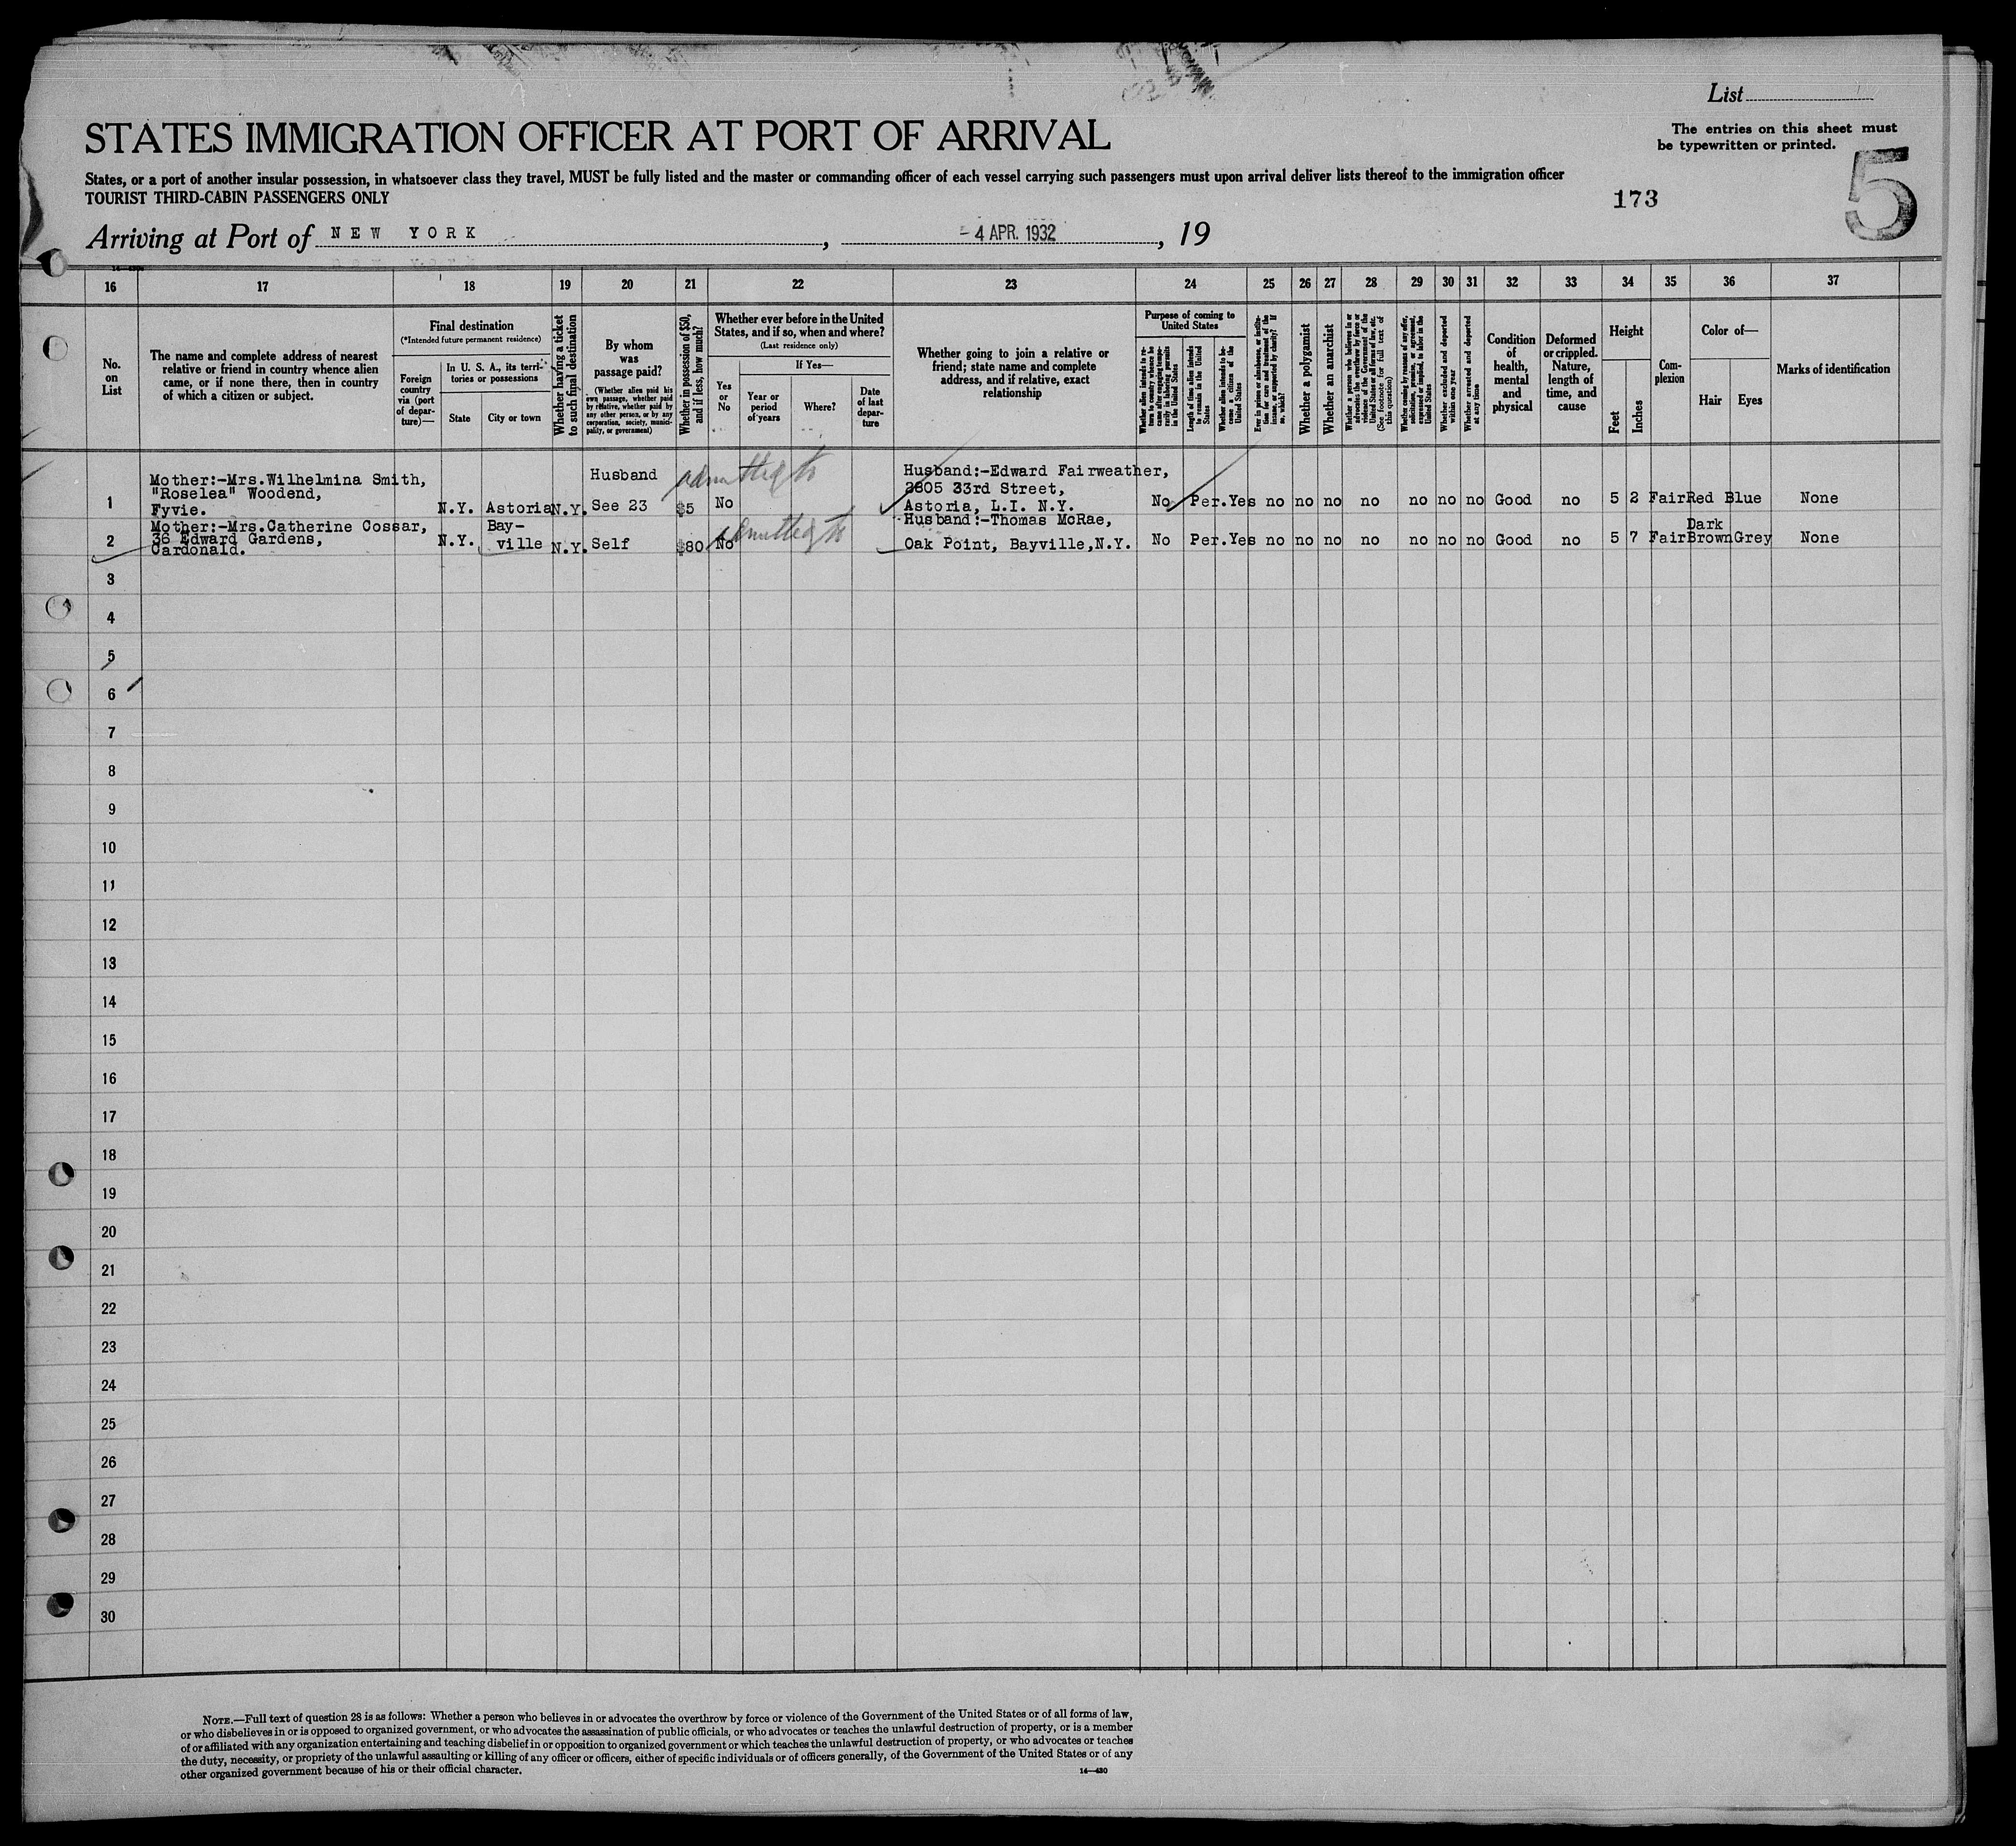 List
The entries on this sheet must
be typewritten or printed.
STATES IMMIGRATION OFFICER AT PORT OF ARRIVAL
5
States, or a port of another insular possession, in whatsoever class they travel, MUST be fully listed and the master or commanding officer of each vessel carrying such passengers must upon arrival deliver lists thereof to the immigration officer
TOURIST THIRD-CABIN PASSENGERS ONLY
173
Arriving at Port of NEW YORK, - 4 APR. 1932, 19
16 17 18 19 20 21 22 23 24 25 26 27 28 29 30 31 32 33 34 35 36 37
No.
on
List
The name and complete address of nearest
relative or friend in country whence alien
came, or if none there, then in country
of which a citizen or subject.
Final destination
(*Intended future permanent residence)
Foreign
country
via (port
of depar-
ture)—
In U. S. A., its terri-
tories or possessions
State
City or town
Whether having a ticket
to such final destination
By whom
was
passage paid?
(Whether alien paid his
own passage, whether paid
by relative, whether paid by
any other person, or by any
corporation, society, munici-
pality, or government)
Whether in possession of $50,
and if less, how much?
Whether ever before in the United
States, and if so, when and where?
(Last residence only)
Yes
or
No
If Yes—
Year or
period
of years
Where?
Date
of last
depar-
ture
Whether going to join a relative or
friend; state name and complete
address, and if relative, exact
relationship
Purpose of coming to
United States
Whether alien intends to re-
turn to country whence he
came after engaging tempo-
rarily in laboring pursuits
in the United States
Length of time alien intends
to remain in the United
States
Whether alien intends to be-
come a citizen of the
United States
Ever in prison or almshouse, or institu-
tion for care and treatment of the
insane, or supported by charity? If
so, which?
Whether a polygamist
Whether an anarchist
Whether a person who believes in or
advocates the overthrow by force or
violence of the Government of the
United States or all forms of law, etc.
(See footnote for full text of
this question)
Whether coming by reason of any offer,
solicitation, promise, or agreement,
expressed or implied, to labor in the
United States
Whether excluded and deported
within one year
Whether arrested and deported
at any time
Condition
of
health,
mental
and
physical
Deformed
or crippled.
Nature,
length of
time, and
cause
Height
Feet
Inches
Com-
plexion
Color of—
Hair
Eyes
Marks of identification
1 Mother:-Mrs.Wilhelmina Smith,
"Roselea" Woodend,
Fyvie.
N.Y. Astoria N.Y. Husband
See 23 $5 No
Husband:-Edward Fairweather,
2805 33rd Street,
Astoria, L.I. N.Y.
No Per. Yes no no no no no no no Good no 5 2 Fair Red Blue None
2 Mother:-Mrs.Catherine Cossar,
36 Edward Gardens,
Cardonald.
N.Y. Bay-
ville N.Y. Self $80 No
Husband:-Thomas McRae,
Oak Point, Bayville,N.Y.
No Per. Yes no no no no no no no Good no 5 7 Fair Dark
Brown Grey None
3
4
5
6
7
8
9
10
11
12
13
14
15
16
17
18
19
20
21
22
23
24
25
26
27
28
29
30
NOTE.—Full text of question 28 is as follows: Whether a person who believes in or advocates the overthrow by force or violence of the Government of the United States or of all forms of law,
or who disbelieves in or is opposed to organized government, or who advocates the assassination of public officials, or who advocates or teaches the unlawful destruction of property, or is a member
of or affiliated with any organization entertaining and teaching disbelief in or opposition to organized government or which teaches the unlawful destruction of property, or who advocates or teaches
the duty, necessity, or propriety of the unlawful assaulting or killing of any officer or officers, either of specific individuals or of officers generally, of the Government of the United States or of any
other organized government because of his or their official character.
14—430